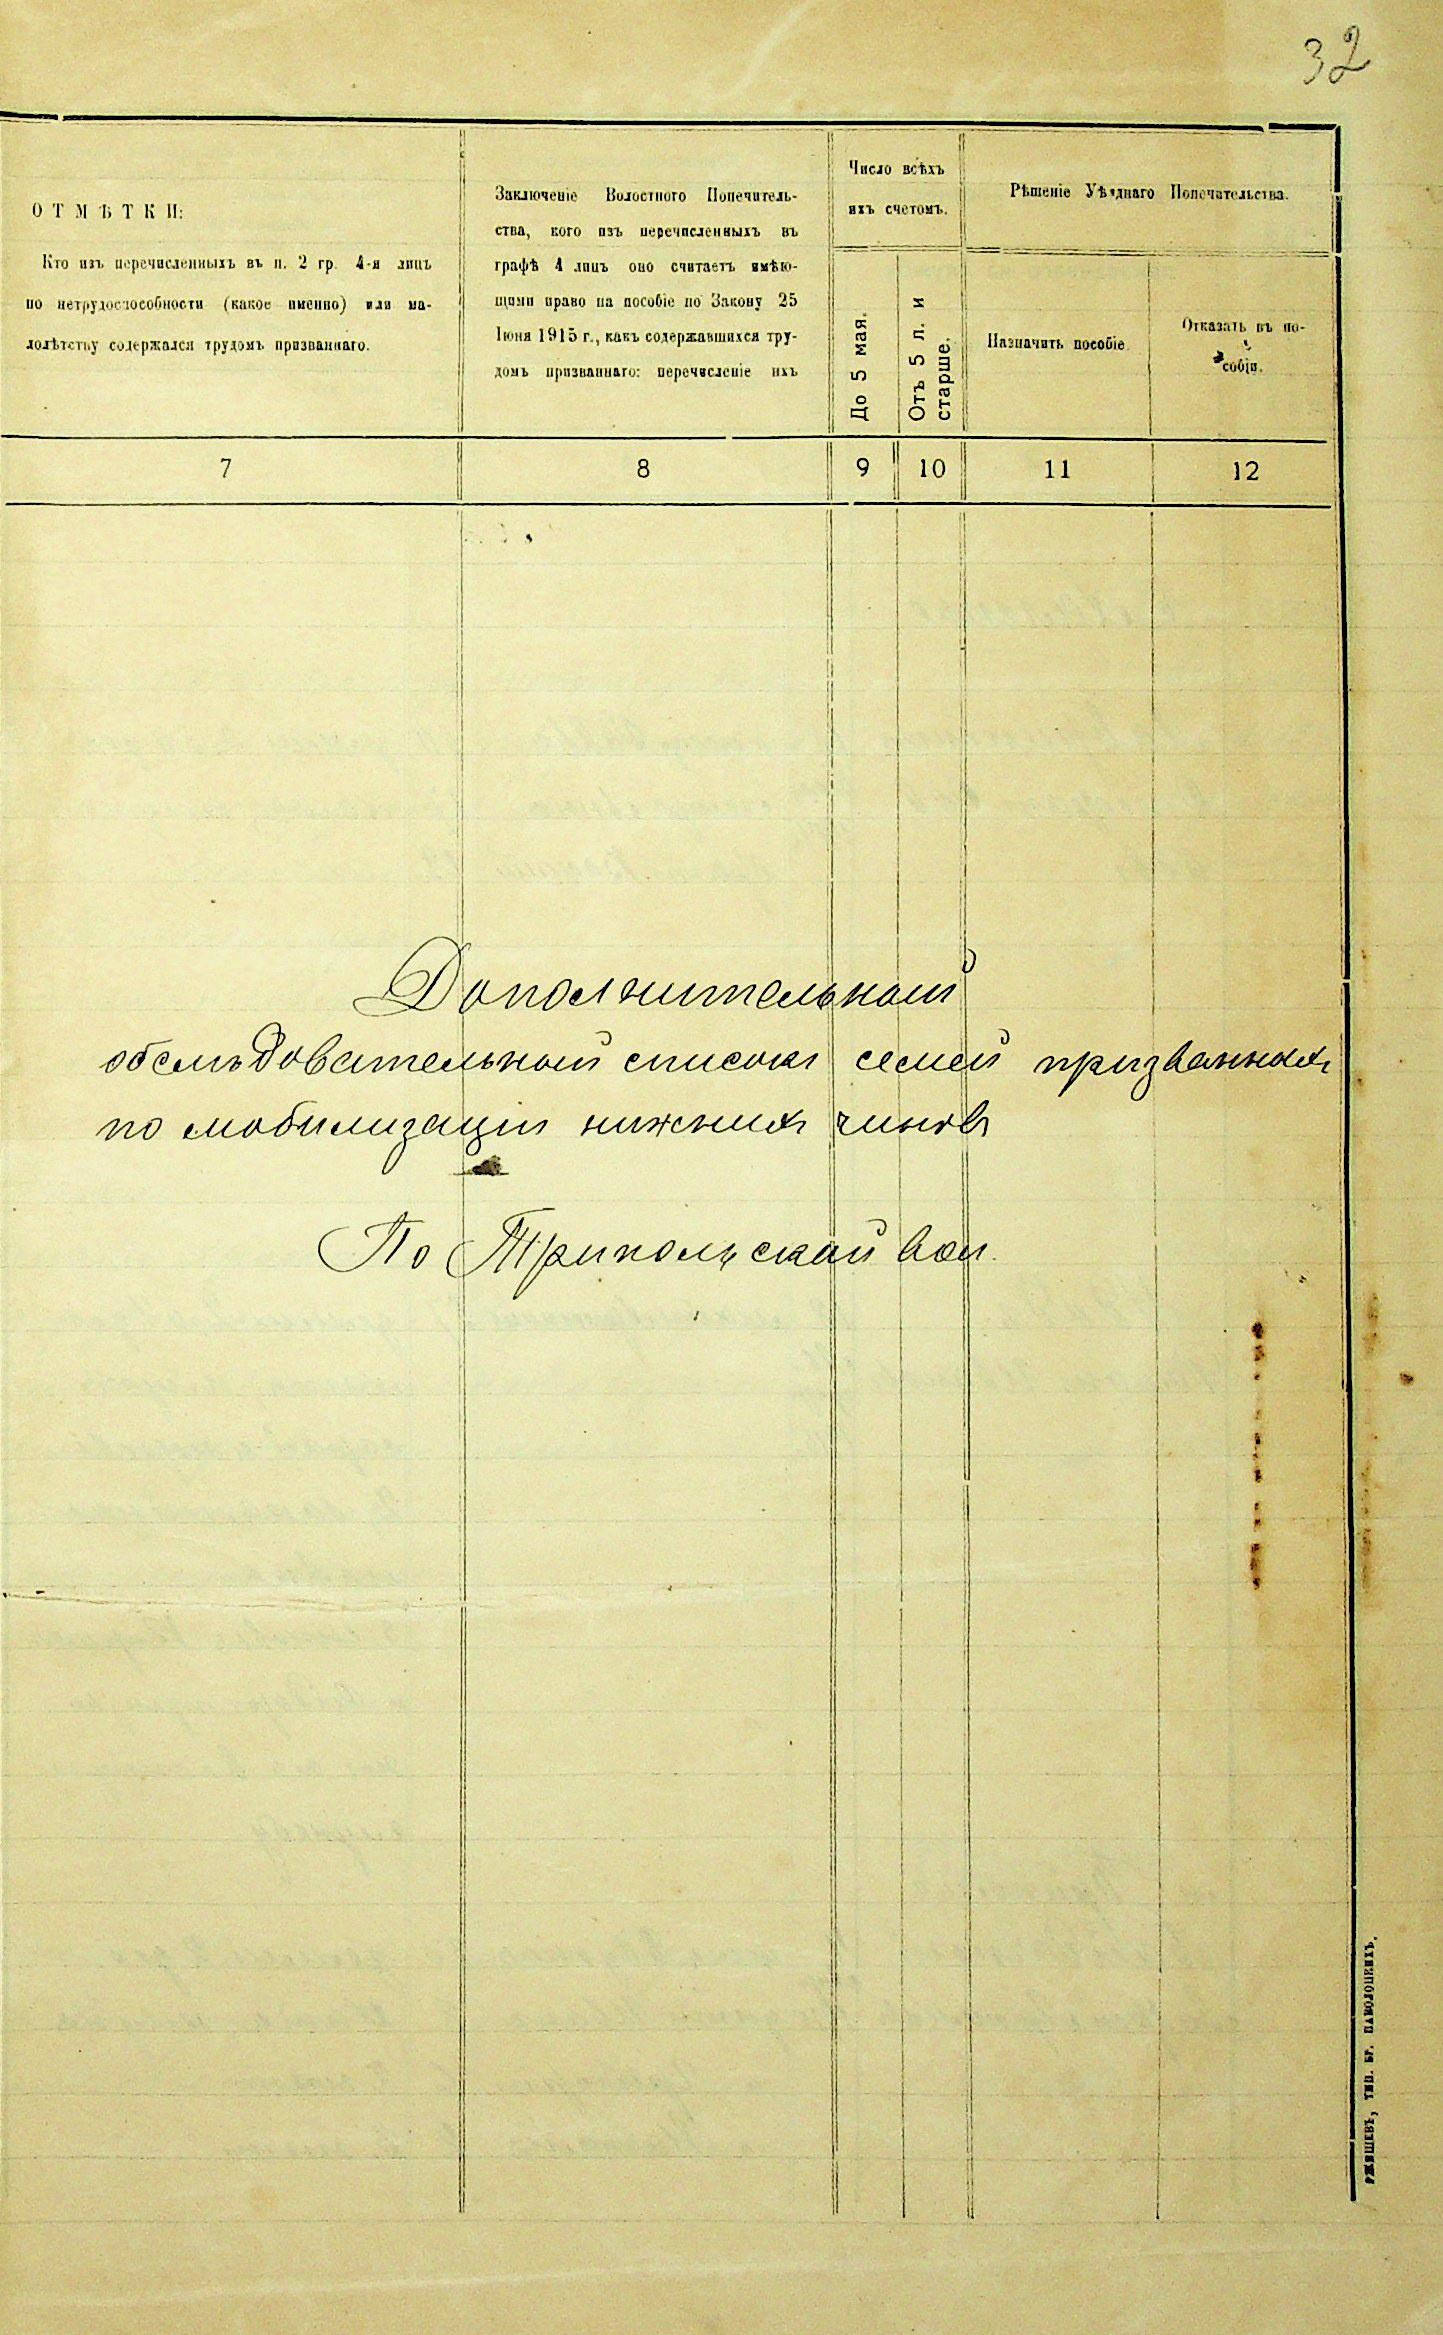 32
ОТМѢТКИ:
Кто изъ перечисленныхъ въ п. 2 гр. 4-я лицъ
по нетрудоспособности (какое именно) или ма-
лолѣтству содержался трудомъ призваннаго.
Заключеніе Волостного Попечитель-
ства, кого изъ перечисленныхъ въ
графѣ 4 лицъ оно считаетъ имѣю-
щими право на пособіе по Закону 25
Іюня 1915 г., какъ содержавшихся тру-
домъ призваннаго: перечисленіе ихъ
Число всѣхъ
ихъ счетомъ.
До 5 мая.
Отъ 5 л. и
старше.
Рѣшеніе Уѣзднаго Попечательства.
Назначить пособіе.
Отказать въ по-
собіи.
7 8 9 10 11 12
Дополнительный
обслѣдовательный списокъ семей призванныхъ
по мобилизаціи нижнихъ чиновъ
По Трипольской вол.
РЖИЩЕВЪ, ТИП. БР. ПАВОЛОЦКИХЪ.